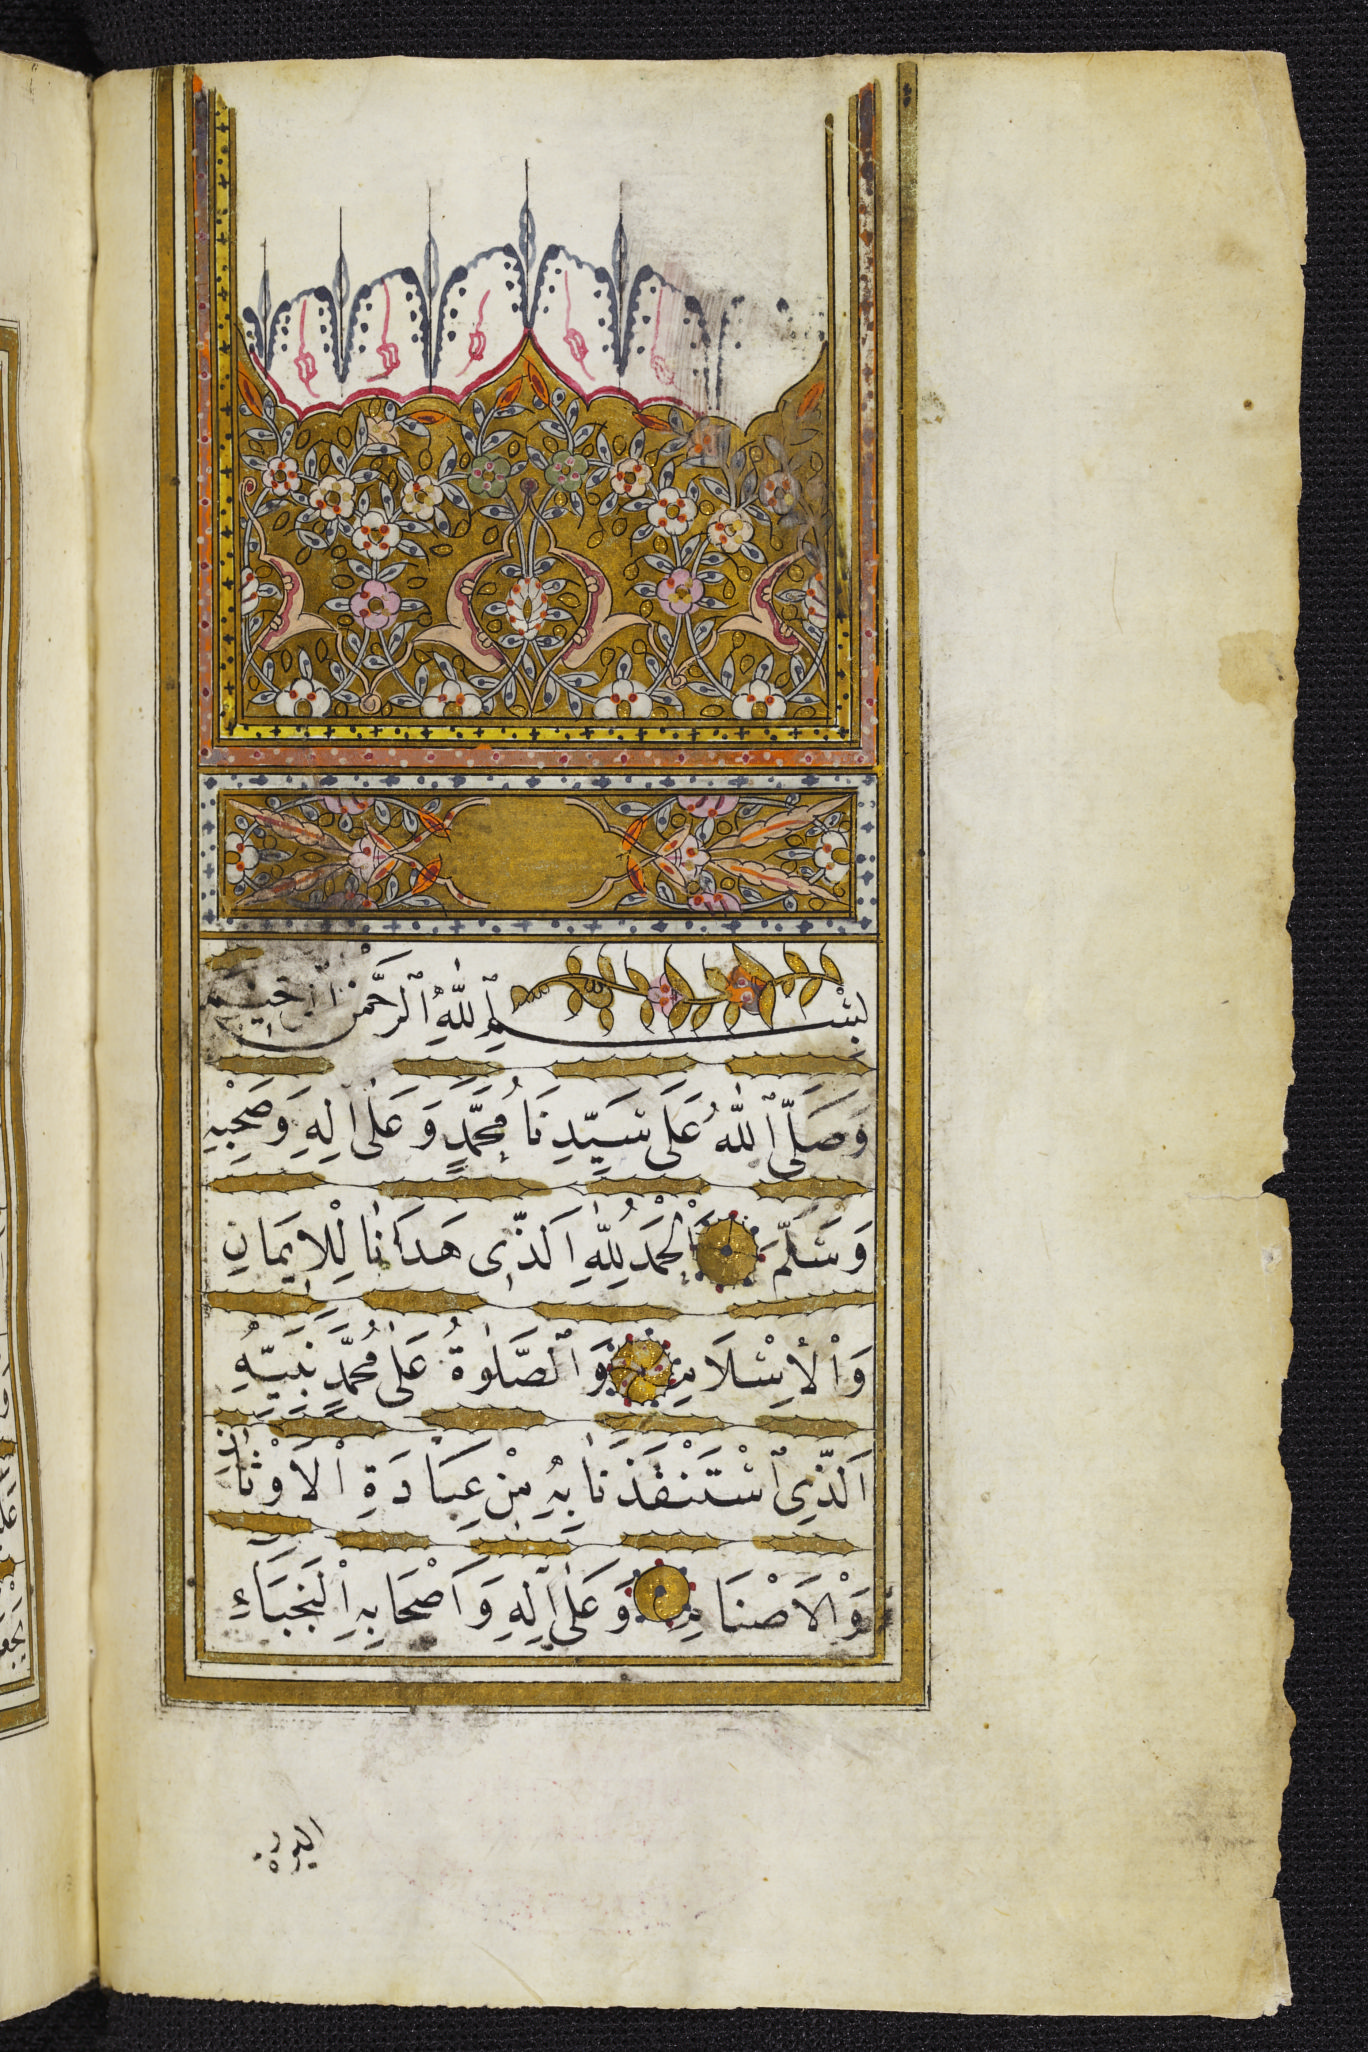 بِسْمِ ٱللّٰهِ ٱلرَّحْمٰنِ ٱلرَّحِيمِ
وَصَلَّى ٱللّٰهُ عَلَى سَيِّدِنَا مُحَمَّدٍ وَعَلٰى اٰلِهِ وَصَحْبِهِ
وَسَلَّمَ اَلْحَمْدُ لِلّٰهِ اَلَّذِى هَدَانَا لِلْاِيمَانِ
وَاْلاِسْلَامِ وَالصَّلٰوةُ عَلٰى مُحَمَّدٍ نَبِيِّهِ
اَلَّذِى ٱسْتَنْقَذَنَا بِهِ مِنْ عِبَادَةِ اْلاَوْثَانِ
وَاْلاَصْنَامِ وَعَلٰى اٰلِهِ وَاَصْحَابِهِ اْلنُّجَبَاءِ
البررة